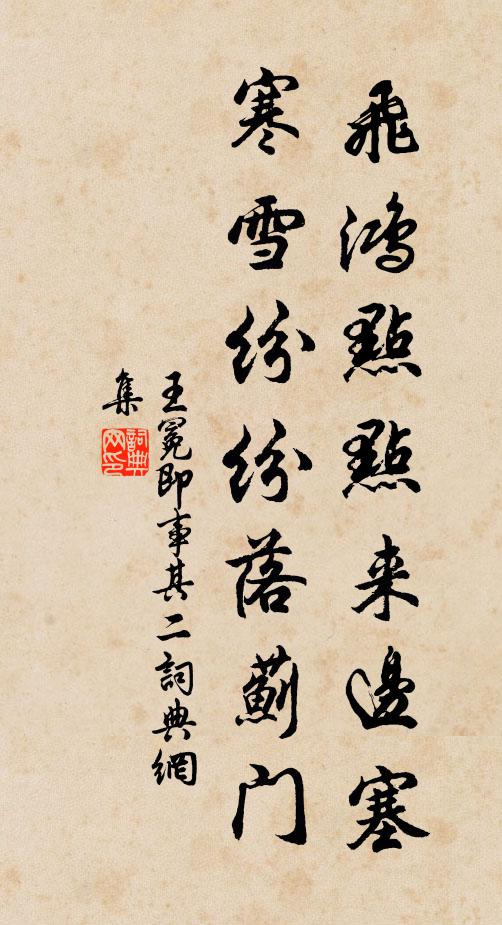 飛鴻點點来邊塞
寒雪紛紛落薊门
王冕即事其二詞典網
集
詞典
网印